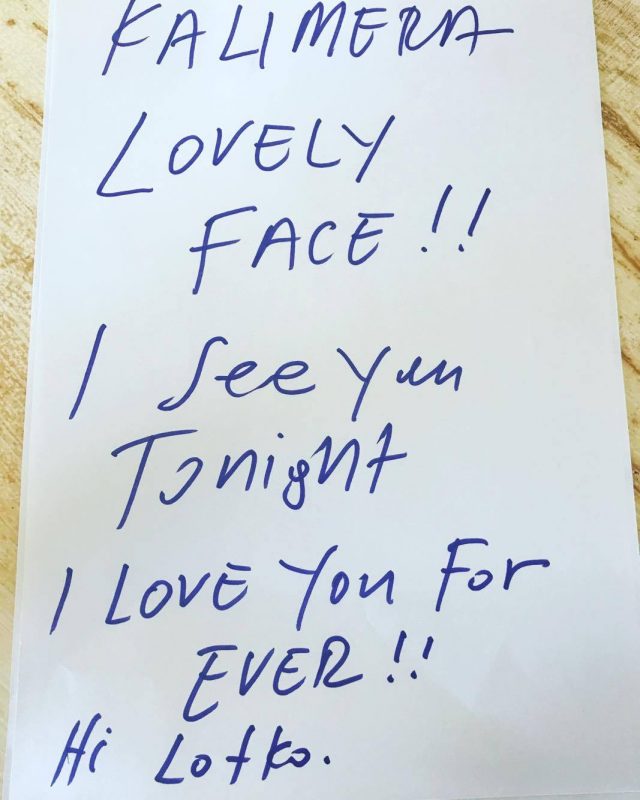 KALIMERA
LOVELY
FACE!!
I See You
Tonight
I LOVE You For
EVER!!
Hi Lotko.